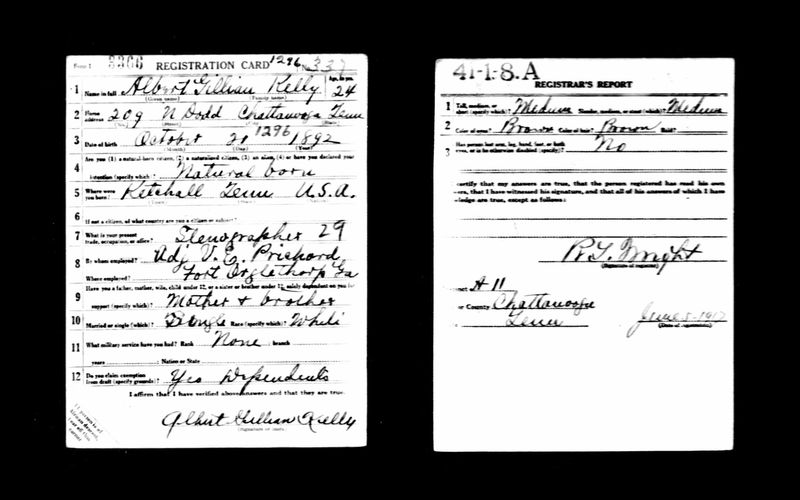 Form 1 3366 REGISTRATION CARD 1296 No. 337
1 Name in full Albert Gillian Kelly Age, in yrs. 24
(Given name) (Family name)
2 Home address 209 N Dodd Chattanooga Tenn
3 Date of birth October 21 1296 1892
(Month) (Day) (Year)
Are you (1) a natural-born citizen, (2) a naturalized citizen, (3) an alien, (4) or have you declared your
4 intention (specify which)? Natural born
5 Where were you born? Ketchall Tenn U.S.A.
6 If not a citizen, of what country are you a citizen or subject?
7 What is your present trade, occupation, or office? Stenographer 29
8 By whom employed? Adj V. E. Prichard
Where employed? Fort Oglethorp Ga
Have you a father, mother, wife, child under 12, or a sister or brother under 12, solely dependent on you for
9 support (specify which)? Mother & brother
10 Married or single (which)? Single Race (specify which)? White
11 What military service have you had? Rank None branch
years Nation or State
12 Do you claim exemption from draft (specify grounds)? Yes Dependents
I affirm that I have verified above answers and that they are true.
Albert Gillian Kelly
(Signature or mark)
If person is of African descent, tear off this corner
41-1-8.A
REGISTRAR'S REPORT
1 Tall, medium, or short (specify which)? Medium Slender, medium, or stout (which)? Medium
2 Color of eyes? Brown Color of hair? Brown Bald?
3 Has person lost arm, leg, hand, foot, or both eyes, or is he otherwise disabled (specify)? No
certify that my answers are true, that the person registered has read his own
ers, that I have witnessed his signature, and that all of his answers of which I have
wledge are true, except as follows:
R. L. Wright
(Signature of registrar)
nct A 11
or County Chattanooga
Tenn June 5-1917
(Date of registration)